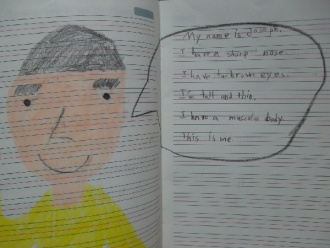 My name is Joseph.
I have a sharp nose.
I have two brown eyes.
I'm tall and thin.
I have a muscular body.
This is me.